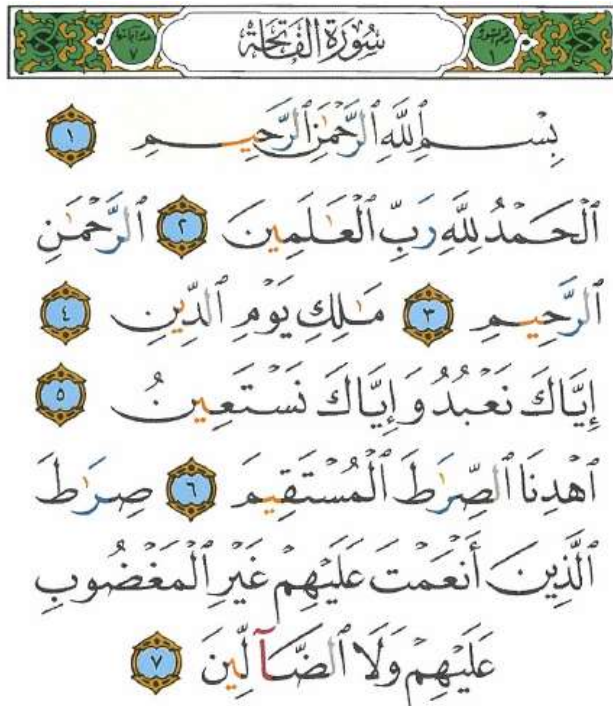 عدد آياتها ٧ سُورَةُ الفَاتِحَةِ رقم السورة ١
بِسْمِ ٱللَّهِ ٱلرَّحْمَٰنِ ٱلرَّحِيمِ ١
ٱلْحَمْدُ لِلَّهِ رَبِّ ٱلْعَٰلَمِينَ ٢ ٱلرَّحْمَٰنِ
ٱلرَّحِيمِ ٣ مَٰلِكِ يَوْمِ ٱلدِّينِ ٤
إِيَّاكَ نَعْبُدُ وَإِيَّاكَ نَسْتَعِينُ ٥
ٱهْدِنَا ٱلصِّرَٰطَ ٱلْمُسْتَقِيمَ ٦ صِرَٰطَ
ٱلَّذِينَ أَنْعَمْتَ عَلَيْهِمْ غَيْرِ ٱلْمَغْضُوبِ
عَلَيْهِمْ وَلَا ٱلضَّآلِّينَ ٧